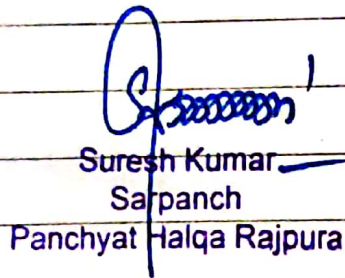 Suresh Kumar
Sarpanch
Panchyat Halqa Rajpura